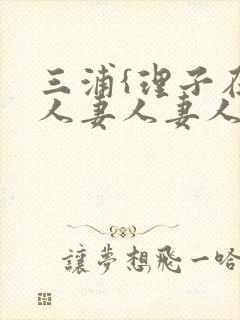 三浦{理子在
人妻人妻人
讓夢想飛一哈